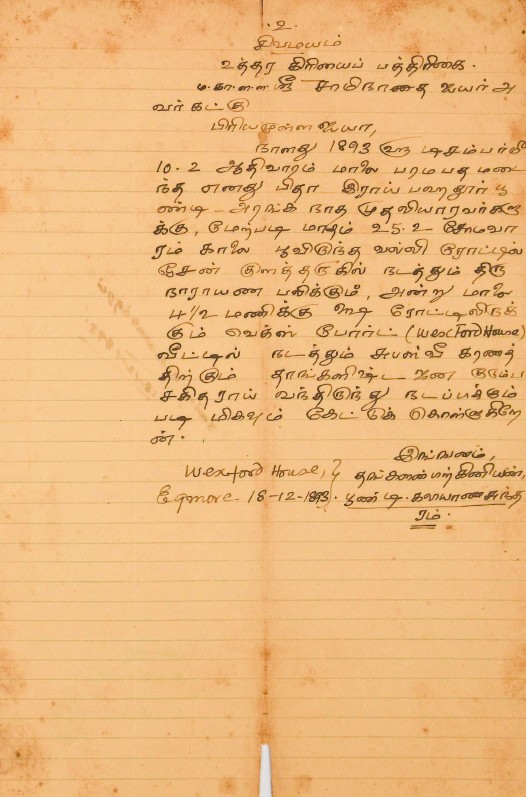 .2.
சிவமயம்
உத்தர கிரியைப் பத்திரிகை.
ம-கா-ள-ள-ஸ்ரீ சாமிநாதை ஐயர் அ
வர்கட்கு
பிரியமுள்ள ஐயா,
நாளது 1893 ௵ டிசம்பர்௴
10.௨ ஆதிவாரம் மாலை பரமபத மடை
ந்த எனது பிதா இராய் பஹதூர் பூ
ண்டி - அரங்க நாத முதலியாரவர்களு
க்கு, மேற்படி மாதம் 25.௨ சோமவா
ரம் காலை பூவிடுந்த வல்லி ரோட்டில்
குளத்தருகில் நடத்தும் திரு
நாராயண பலிக்கும், அன்று மாலை
4 1/2 மணிக்கு ௸ ரோட்டிலிருக்
கும் வெக்ஸ் போர்ட் (Wexford House)
வீட்டில் நடத்தும் சுபஸ்வீ கரணத்
திற்கும் தாங்களிஷ்ட ஜன குடும்ப
சகிதராய் வந்திடுந்து நடப்பிக்கும்
படி மிகவும் கேட்டுக் கொள்ளுகிறே
ன்.
இங்ஙனம்,
Wexford House, தங்களன்பிற்கினியன்,
Egmore 18-12-1893. பூண்டி. கலியாணசுந்த
ரம்.